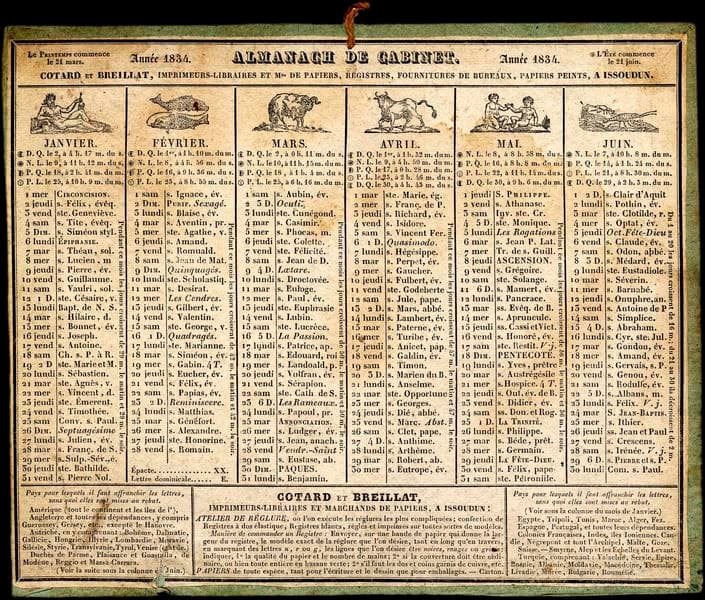 Le Printemps commence
le 21 mars.
Année 1834.
ALMANACH DE CABINET.
Année 1834.
L'Été commence
le 21 juin.
COTARD ET BREILLAT, IMPRIMEURS-LIBRAIRES ET Mds DE PAPIERS, REGISTRES, FOURNITURES DE BUREAUX, PAPIERS PEINTS, A ISSOUDUN.
JANVIER.
D. Q. le 2, à 4 h. 17 m. du s.
N. L. le 9, à 11 h. 12 m. du s.
P. Q. le 18, à 2 h. 11 m. du s.
P. L. le 25, à 10 h. du m.
1 mer Circoncision.
2 jeudi s. Félix, évêq.
3 vend ste. Geneviève.
4 sam s. Tite, évêq.
5 Dim. s. Siméon styl.
6 lundi Épiphanie.
7 mar s. Théau, sol.
8 mer s. Lucien, m
9 jeudi s. Pierre, év.
10 vend s. Guillaume.
11 sam s. Valri, sol.
12 1 D ste. Césaire, v.
13 lundi Bapt. de N. S.
14 mar s. Hilaire, d.
15 mer s. Bonnet, év.
16 jeudi s. Joseph.
17 vend s. Antoine.
18 sam Ch. s. P. à R.
19 2 D ste. Marie et M.
20 lundi s. Sébastien.
21 mar ste. Agnès, v.
22 mer s. Vincent, d.
23 jeudi ste. Emerent.
24 vend s. Timothée.
25 sam Conv. s. Paul.
26 Dim. Septuagésime.
27 lundi s. Julien, év.
28 mar s. Franç. de S.
29 mer s. Sulp.-Sév., é.
30 jeudi ste. Bathilde.
31 vend s. Pierre Nol.
FÉVRIER.
D. Q. le 1er, à 4 h. 10 m. du m.
N. L. le 8, à 5 h. 56 m. du s.
P. Q. le 16, à 9 h. 36 m. du s.
P. L. le 23, à 8 h. 55 m. du s.
1 sam s. Ignace, év.
2 Dim. Purif. Sexagé.
3 lundi s. Blaise, év.
4 mar s. Aventin, pr.
5 mer ste. Agathe, v.
6 jeudi s. Amand.
7 ven s. Romuald.
8 sam s. Jean de Mat.
9 Dim. Quinquagés.
10 lundi ste. Scholastiq.
11 mar s. Desirat.
12 mer Les Cendres.
13 jeudi s. Gilbert, év.
14 vend s. Valentin.
15 sam ste. George, v.
16 1 D Quadragés.
17 lundi ste. Marianne.
18 mar s. Siméon, év.
19 mer s. Gabin. 4 T.
20 jeudi s. Eucher, év.
21 vend s. Félix, év.
22 sam s. Papias, év.
23 2 D. Reminiscere.
24 lundi s. Matthias.
25 mar s. Généfort.
26 mer s. Alexandre.
27 jeudi ste. Honorine.
28 vend s. Romain.
Épacte. XX.
Lettre dominicale. E.
MARS.
D. Q. le 2, à 0 h. 11 m. du s.
N. L. le 10, à 11 h. 15 m. du m.
P. Q. le 18, à 2 h. 13 m. du s.
P. L. le 25, à 6 h. 16 m. du m.
1 sam s. Aubin, év.
2 3 D. Oculi.
3 lundi ste. Cunégond.
4 mar s. Casimir.
5 mer s. Phocas, m.
6 jeudi ste. Colette.
7 vend ste. Félicité.
8 sam s. Jean de D.
9 4 D. Lætare.
10 lundi s. Droctovée.
11 mar s. Euloge.
12 mer s. Paul, év.
13 jeudi ste. Euphrasie
14 vend s. Lubin.
15 sam ste. Lucrèce.
16 5 D. La Passion.
17 lundi s. Patrice, ap.
18 mar s. Edouard, roi
19 mer s. Landoald, p.
20 jeudi s. Volfran, év.
21 vend s. Sérapion.
22 sam ste. Cath. de S.
23 6 D. Les Rameaux.
24 lundi s. Papoul, pr.
25 mar Annonciation.
26 mer s. Ludger, év.
27 jeudi s. Jean, anach.
28 vend Vendr.-Saint
29 sam s. Eustase, ab.
30 Dim. PAQUES.
31 lundi s. Benjamin.
AVRIL.
D. Q. le 1er, à 1 h. 32 m. du m.
N. L. le 9, à 4 h. 50 m. du m.
P. Q. le 17, à 0 h. 28 m. du m.
P. L. le 23, à 2 h. 56 m. du s.
D. Q. le 30, à 4 h. 43 m. du s.
1 mar ste. Marie, ég.
2 mer s. Franç. de P.
3 jeudi s. Richard, év.
4 vend s. Isidore.
5 sam s. Vincent Fer.
6 1 D. Quasimodo.
7 lundi s. Hégésippe.
8 mar s. Perpet, év.
9 mer s. Gaucher.
10 jeudi s. Fulbert, év.
11 vend ste. Godeherte
12 sam s. Jule, pape.
13 2 D. s. Mars, abbé.
14 lundi s. Lambert, év.
15 mar s. Paterne, év.
16 mer s. Turibe, év.
17 jeudi s. Anicet, pap.
18 vend s. Galdin, év.
19 sam s. Timon.
20 3 D. s. Marien du B.
21 lundi s. Anselme.
22 mar ste. Opportune
23 mer s. Georges.
24 jeudi s. Dié, abbé.
25 vend s. Marc. Abst. P.
26 sam s. Clet, pape.
27 4 D. s. Anthime.
28 lundi s. Arthème.
29 mar s. Robert, ab.
30 mer s. Eutrope, év.
MAI.
N. L. le 8, à 8 h. 58 m. du s.
P. Q. le 16, à 8 h. 8 m. du m.
P. L. le 22, à 11 h. 14 m. du s.
D. Q. le 30, à 9 h. 6 m. du m.
1 jeudi S. Philippe.
2 vend s. Athanase.
3 sam Inv. ste. Cr.
4 5 D. ste. Monique.
5 lundi Les Rogations
6 mar s. Jean P. Lat.
7 mer Tr. de s. Guill.
8 jeudi ASCENSION.
9 vend s. Grégoire.
10 sam ste. Solange.
11 6 D. s. Mamert, év.
12 lundi s. Pancrace.
13 mar s. Evêq. de B.
14 mer s. Apruncule.
15 jeudi ss. Cassi et Vict.
16 vend s. Honoré, év.
17 sam ste. Restit. V. J.
18 Dim. PENTECOTÉ.
19 lundi s. Yves, prêtre
20 mar ste. Austrégésile
21 mer s. Hospice. 4 T.
22 jeudi s. Oul. év. de B.
23 vend s. Didier, év.
24 sam ss. Don. et Rog.
25 1 D. La Trinité.
26 lundi s. Philippe.
27 mar s. Béde, prêt.
28 mer s. Germain.
29 jeudi La Fête-Dieu
30 vend s. Félix, pape.
31 sam ste. Pétronille.
JUIN.
N. L. le 7, à 10 h. 8 m. du m.
P. Q. le 14, à 1 h. 21 m. du s.
P. L. le 21, à 8 h. 30 m. du m.
D. Q. le 29, à 2 h. 3 m. du m.
1 2 D. s. Clair d'Aquit
2 lundi s. Pothin, év.
3 mar ste. Clotilde, r.
4 mer s. Optat, év.
5 jeudi Oct. Fête-Dieu
6 vend s. Claude, év.
7 sam s. Odon, abbé
8 3 D. s. Médard, év.
9 lundi ste. Eustadiole.
10 mar s. Séverin.
11 mer s. Barnabé.
12 jeudi s. Onuphre, an.
13 vend s. Antoine de P
14 sam s. Simplice.
15 4 D. s. Abraham.
16 lundi s. Cyr, ste. Jul
17 mar s. Gondou, év.
18 mer s. Amand, év.
19 jeudi s. Gervais, s. P.
20 vend s. Genou, év.
21 sam s. Rodulfe, év.
22 5 D. s. Alban, m.
23 lundi s. Félix. V. J.
24 mar S. Jean-Baptis.
25 mer s. Ithier.
26 jeudi ss. Jean et Paul
27 ven s. Crescens.
28 sam s. Irénée. V. J.
29 6 D. s. Pierre et s. P.
30 lundi Com. s. Paul.
Pays pour lesquels il faut affranchir les lettres,
sans quoi elles sont mises au rebut.
Amérique (tout le continent et les îles de l'),
Angleterre et toutes ses dépendances, y compris
Guernesey, Gersey, excepté le Hanovre.
Autriche, en y comprenant Bohême, Dalmatie,
Gallicie, Hongrie, Illyrie, Lombardie, Moravie,
Silésie, Styrie, Transylvanie, Tyrol, Venise (états de),
Duchés de Parme, Plaisance et Guastalla, de
Modène, Reggio et Massa-Carrara.
(Voir la suite sous la colonne de Juin.)
COTARD ET BREILLAT,
IMPRIMEURS-LIBRAIRES ET MARCHANDS DE PAPIERS, A ISSOUDUN;
ATELIER DE RÉGLURE, où l'on exécute les réglures les plus compliquées; confection de
Registres à dos élastique; Registres blancs, réglés et imprimés sur toutes sortes de modèles.
Manière de commander un Registre: Envoyer, sur une bande de papier qui donne la lar-
geur du registre, le modèle exact de la réglure que l'on désire, tant en long qu'en travers,
en marquant des lettres n, r ou g, les lignes que l'on désire être noires, rouges ou grises;
indiquer, 1° la qualité du papier et le nombre de mains; 2° si la couverture doit être ordi-
naire, ou bien toute entière en basane verte; 3° s'il faut les dos et coins garnis de cuivre, etc.
PAPIERS de toute espèce, tant pour l'écriture et le dessin que pour emballages. — Carton.
Pays pour lesquels il faut affranchir les lettres,
sans quoi elles sont mises au rebut.
(Voir sous la colonne du mois de Janvier.)
Egypte, Tripoli, Tunis, Maroc, Alger, Fez.
Espagne, Portugal, et toutes leurs dépendances.
Colonies Françaises, Indes, Iles Ioniennes, Can-
die, Négrepont et tout l'Archipel, Malte, Goze,
Suisse, Smyrne, Alep et les Echelles du Levant.
Turquie, comprenant: Valachie, Servie, Epire,
Bosnie, Albanie, Moldavie, Macédoine, Thessalie,
Livadie, Morée, Bulgarie, Roumélie.